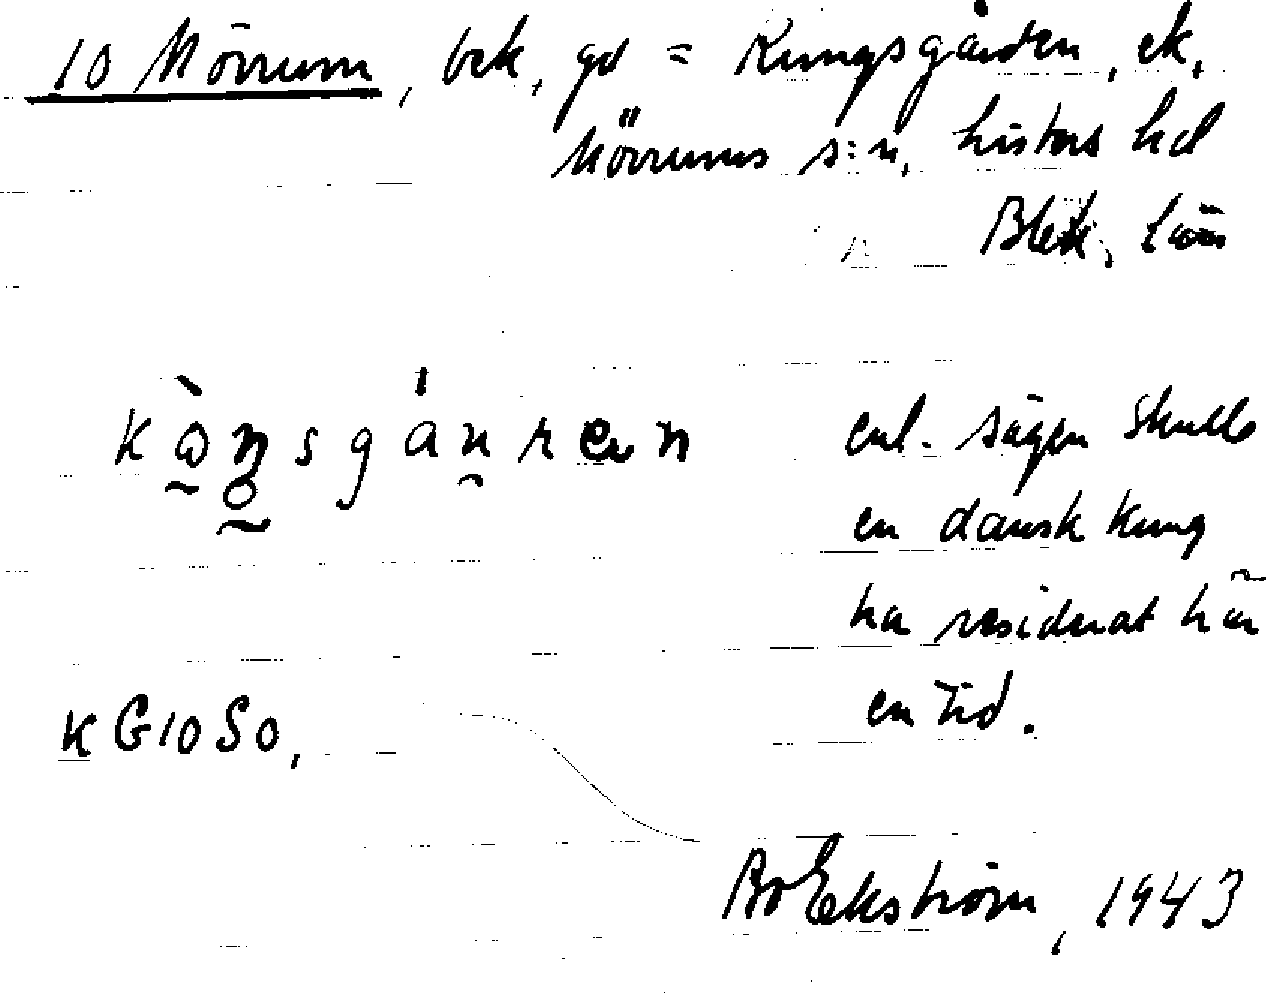 10 Mörrum, bek, gd = Kungsgården, ek,
Mörrums s:n, Listers hd
Blek, län
enl. sägen skulle
en dansk kung
ha residerat här
en tid.
KG10So,
Bo Ekström, 1943